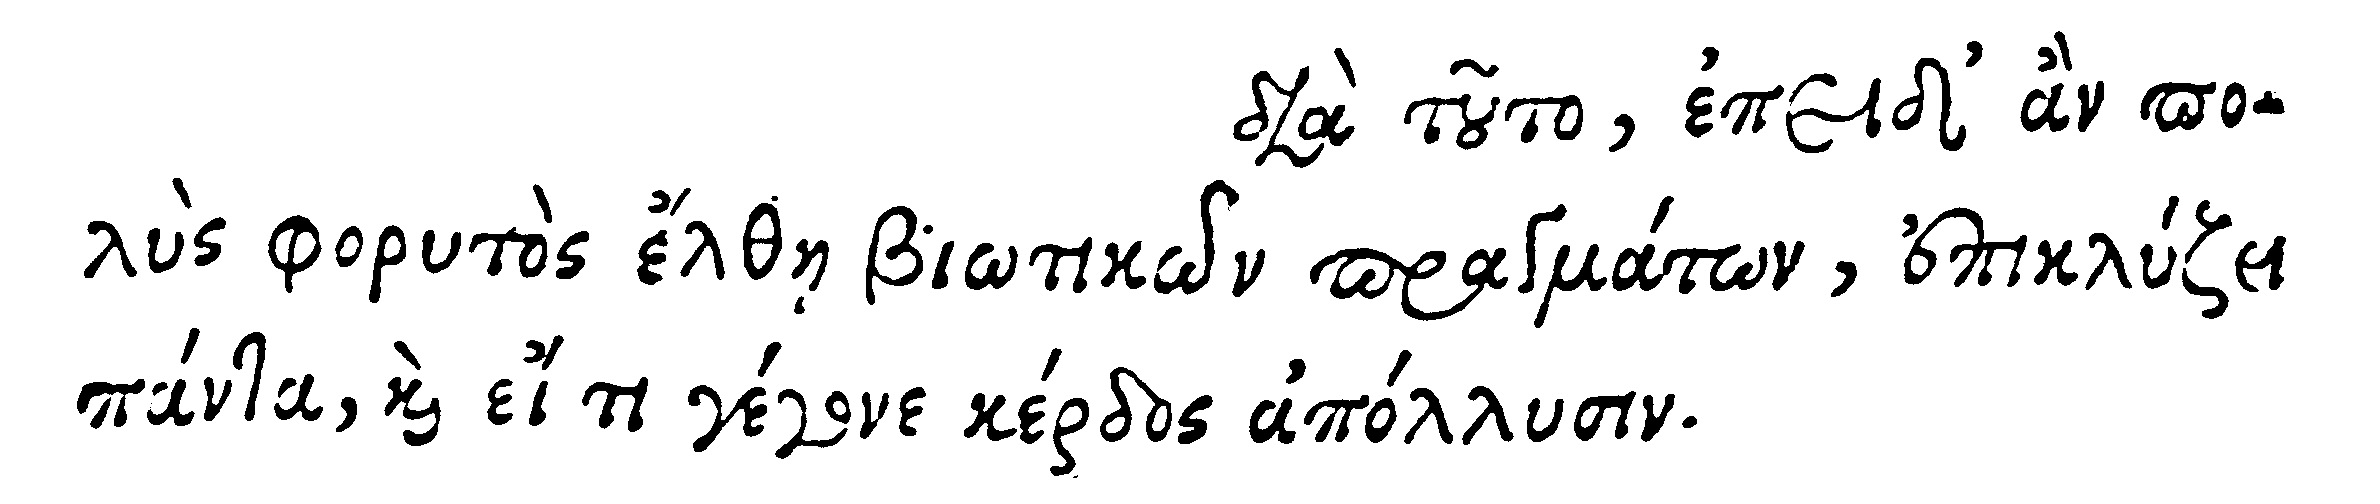 διὰ τοῦτο, ἐπειδ' ἂν πο-
λὺς φορυτὸς ἔλθῃ βιωτικῶν πραγμάτων, ἐπικλύζει
πάντα, καὶ εἴ τι γέγονε κέρδος ἀπόλλυσιν.